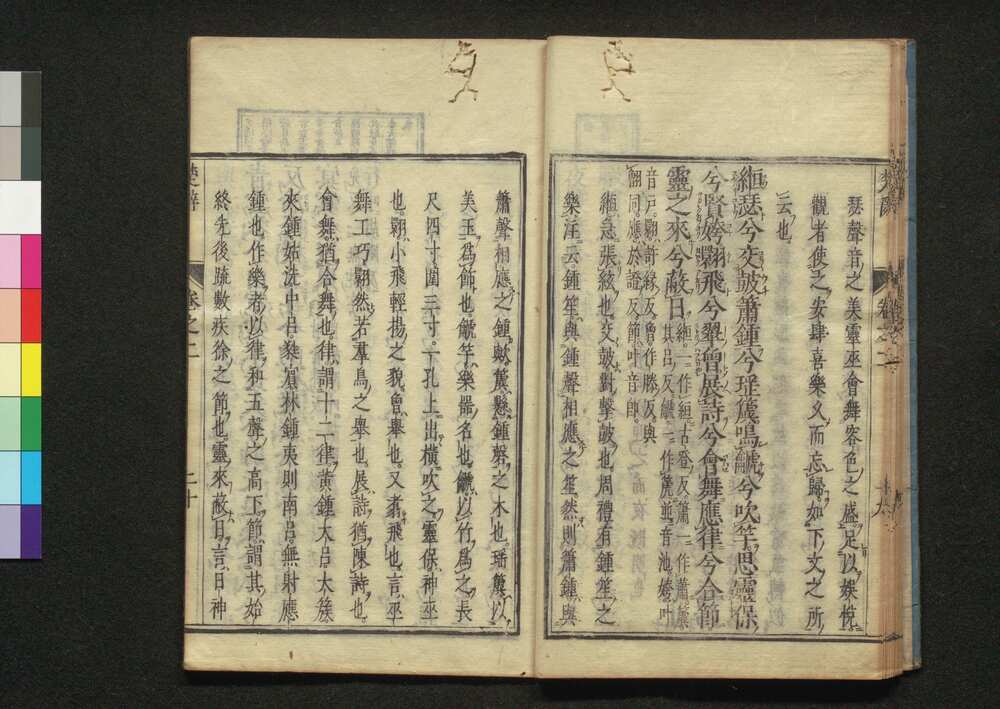 瑟聲音之美靈巫會舞容色之盛足以娛悅
觀者使之安肆喜樂久而忘歸如下文之所
云也
緪瑟兮交鼓蕭鍾兮瑤簴鳴䶵兮吹竽思靈保
兮賢姱翾飛兮翠曾展詩兮會舞應律兮合節
靈之來兮蔽日
緪一作絚古登反蕭一作簫簴
其呂反䶵一作篪並音池姱叶
音戸翾許緣反曾作滕反與
䎖同應於證反節叶音卽
緪急張絃也交鼓對擊鼓也周禮有鍾笙之
樂注云鍾笙與鍾聲相應之笙然則簫鍾與
簫聲相應之鍾歟簴懸鍾磬之木也瑤簴以
美玉爲飾也䶵竽樂器名也䶵以竹爲之長
尺四寸圍三寸一孔上出橫吹之靈保神巫
也翾小飛輕揚之貌曾舉也又翥飛也言巫
舞工巧翾然若羣鳥之舉也展詩猶陳詩也
會舞猶合舞也律謂十二律黃鍾大呂大簇
夾鍾姑洗中呂蕤賓林鍾夷則南呂無射應
鍾也作樂者以律和五聲之高下節謂其始
終先後疏數疾徐之節也靈來蔽日言日神
楚辭
卷之二
二十